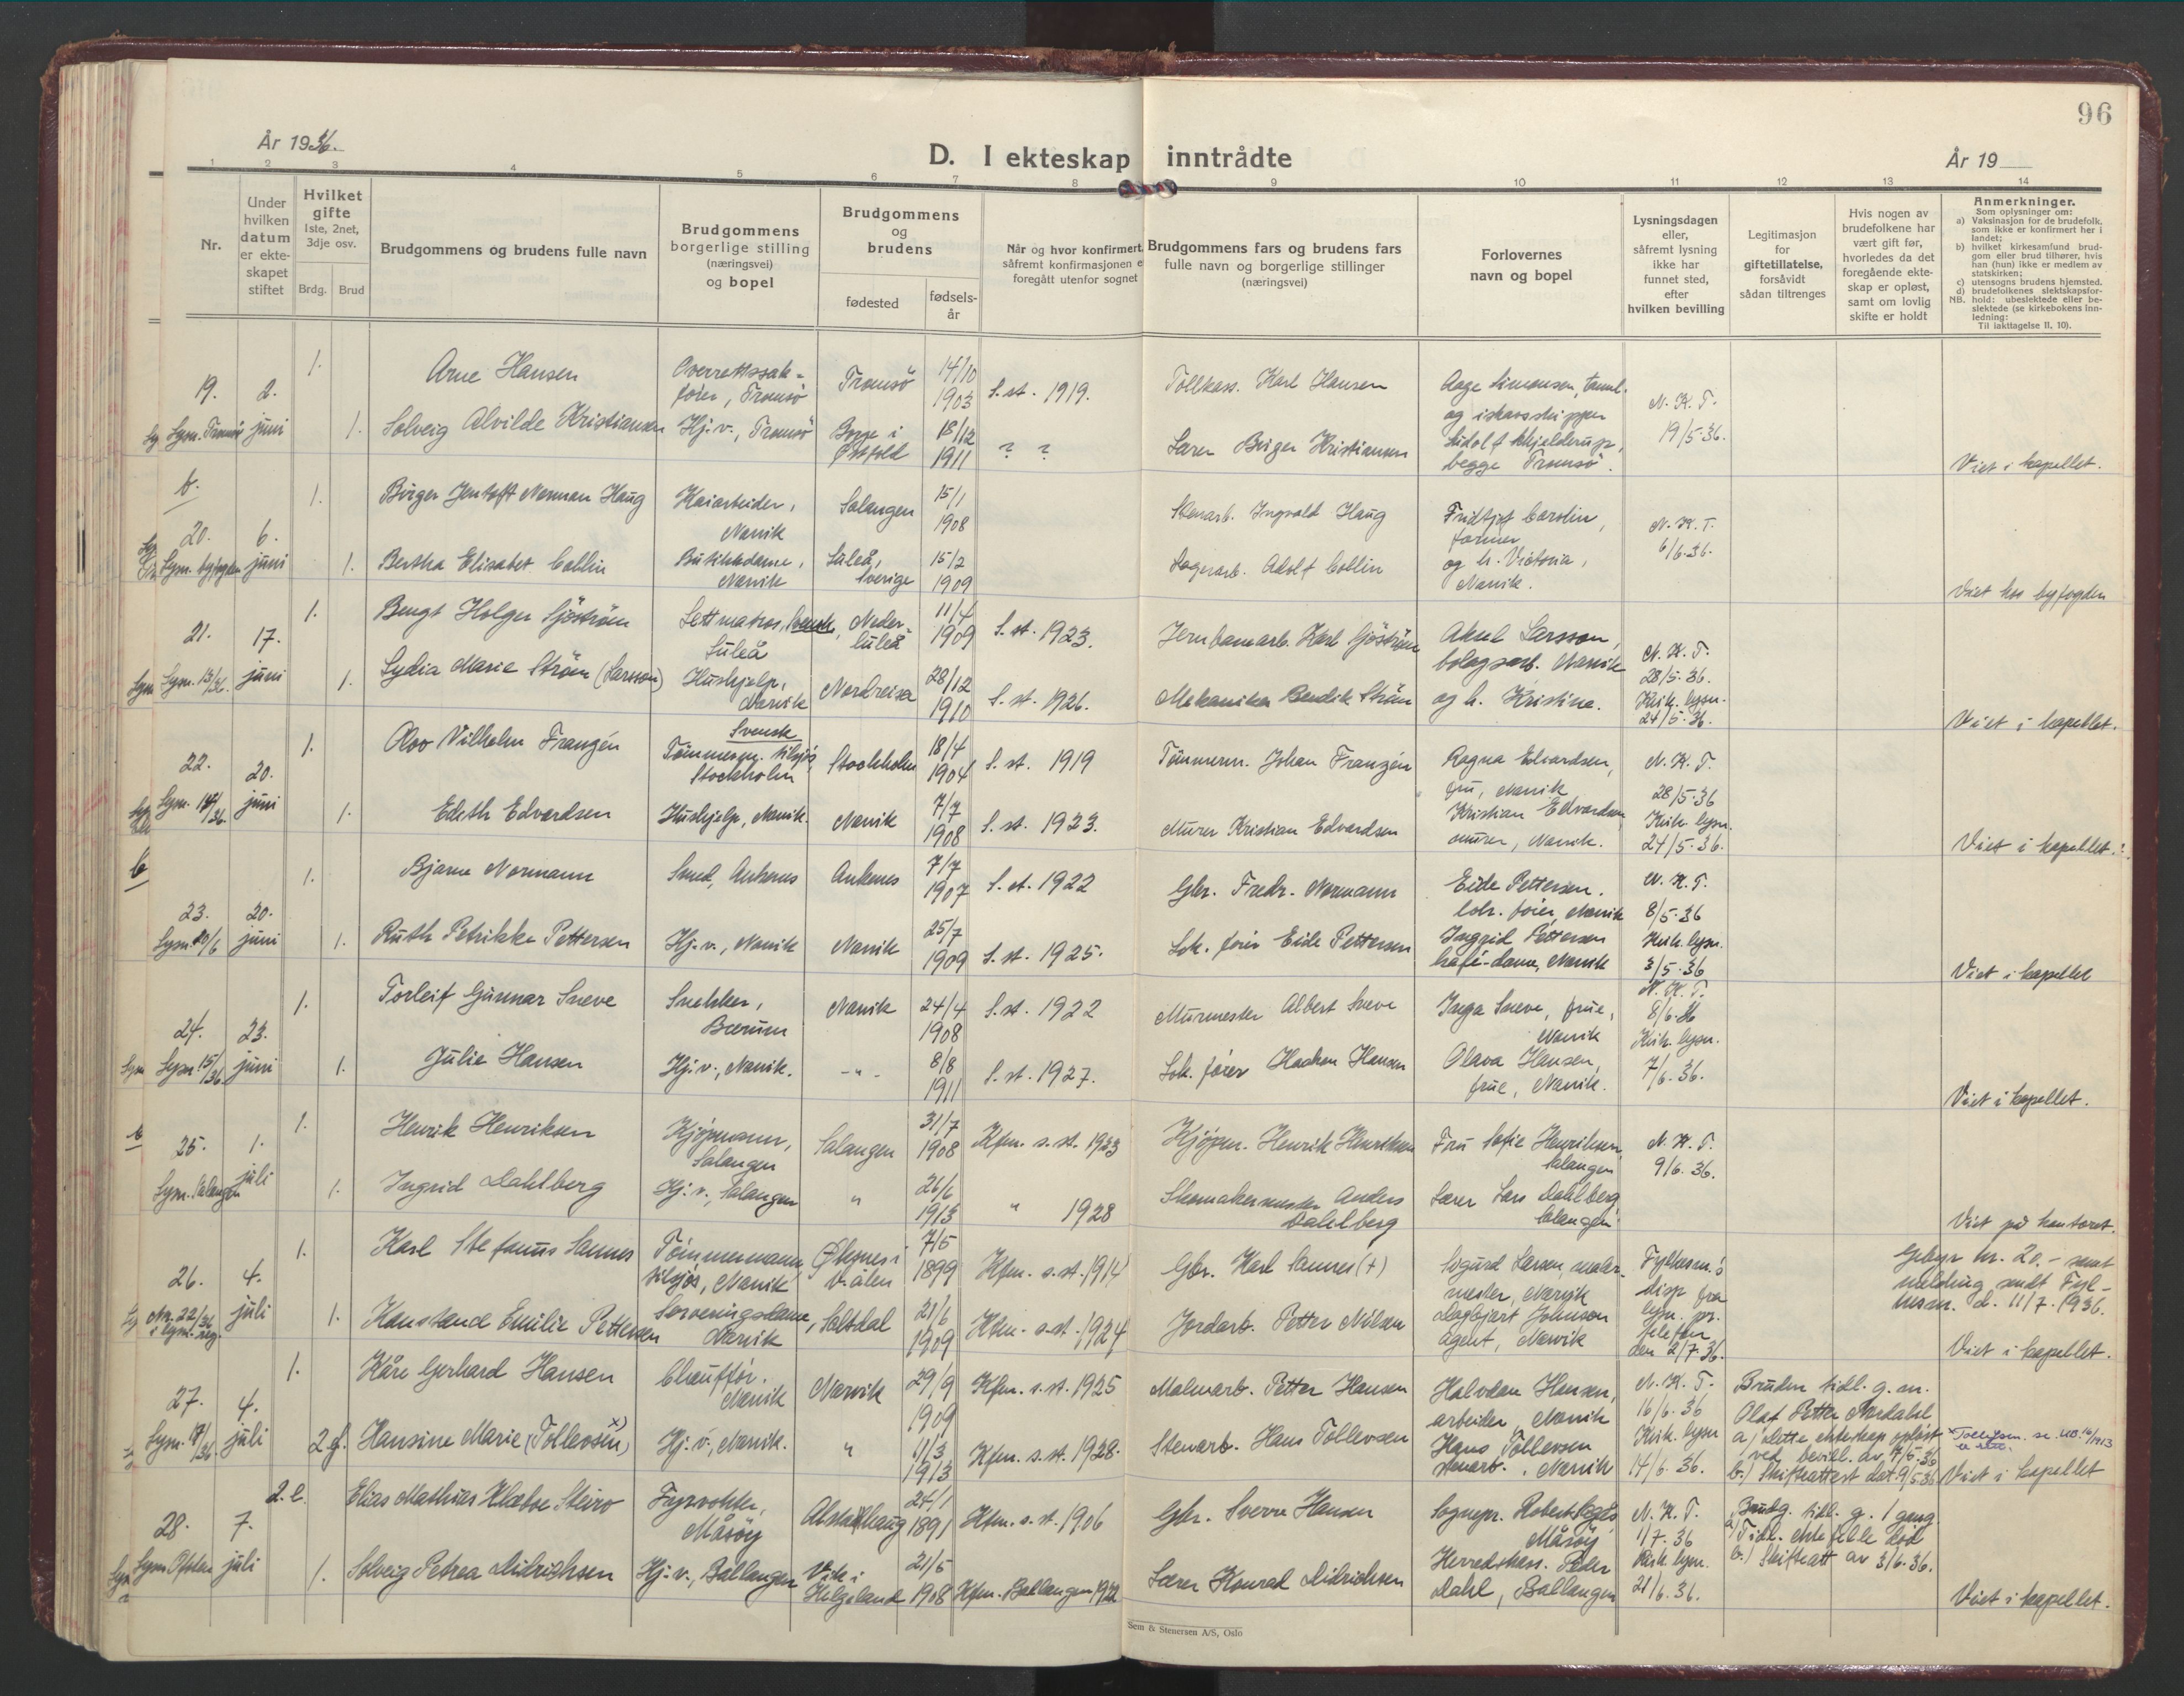 96
År 1936.
D. I ekteskap inntrådte
År 19
1 2 3 4 5 6 7 8 9 10 11 12 13 14
Nr.
Under hvilken datum er ekteskapet stiftet
Hvilket gifte
1ste, 2net, 3dje osv.
Brdg. Brud
Brudgommens og brudens fulle navn
Brudgommens borgerlige stilling (næringsvei) og bopel
Brudgommens og brudens
fødested
fødselsår
Når og hvor konfirmert,
såfremt konfirmasjonen e
foregått utenfor sognet
Brudgommens fars og brudens fars
fulle navn og borgerlige stillinger
(næringsvei)
Forlovernes
navn og bopel
Lysningsdagen
eller,
såfremt lysning
ikke har
funnet sted,
efter
hvilken bevilling
Legitimasjon
for
giftetillatelse,
forsåvidt
sådan tiltrenges
Hvis nogen av
brudefolkene har
vært gift før,
hvorledes da det
foregående ekte-
skap er opløst,
samt om lovlig
skifte er holdt
Anmerkninger.
Som oplysninger om:
a) Vaksinasjon for de brudefolk,
som ikke er konfirmert her i
landet;
b) hvilket kirkesamfund brud-
gom eller brud tilhører, hvis
han (hun) ikke er medlem av
statskirken;
c) utensogns brudens hjemsted.
d) brudefolkenes slektskapsfor-
NB. hold: ubeslektede eller be-
slektede (se kirkebokens inn-
ledning:
Til iakttagelse II, 10).
19. 2. juni
Lysn. Tromsø
1. Arne Hansen
Overrettssak-
fører, Tromsø
Tromsø
14/10
1903
S. st. 1919.
Tollkass. Karl Hansen
Aage Simonsen, tannl.
og ishavsskipper
N. K. T.
19/5-36.
1. Solveig Alvilde Kristiansen
Hj.v., Tromsø
Borge i
Østfold
18/12
1911
? ?
Lærer Birger Kristiansen
begge Tromsø.
Viet i kapellet.
b.
20. 6. juni
Lysn. byfogden
1. Birger Jentoft Norman Haug
Kaiarbeider,
Narvik
Salangen
15/1
1908
Stenarb. Ingvald Haug
Fridtjof Carolin,
N. K. T.
6/6-36.
1. Bertha Elisabet Collin
Butikkdame,
Narvik
Luleå,
Sverige
15/2
1909
Lagerarb. Adolf Collin
og h. Victoria,
Narvik.
Viet hos byfogden
21. 17. juni
Lysn. 13/36.
1. Bengt Holger Sjöström
Lettmatros, Svensk,
Luleå
Neder-
luleå
11/4
1909
S. st. 1923.
Jernbanearb. Karl Sjöström
Aksel Larsson,
bolagsarb. Narvik
N. K. T.
28/5-36.
1. Lydia Marie Strøm (Larsson)
Hushjelp,
Narvik
Nordreisa
28/12
1910
S. st. 1926.
Mekaniker Bendik Strøm
og h. Kristine.
Kirk. lysn.
24/5-36.
Viet i kapellet.
22. 20. juni
Lysn. 14/36.
1. Olov Vilhelm Franzén
Svensk
Tømmerm. tilsjøs,
Stockholm
Stockholm
18/4
1904
S. st. 1919
Tömmerm. Johan Franzén
Ragna Edvardsen,
fru, Narvik
N. K. T.
28/5-36
1. Edith Edvardsen
Hushjelp, Narvik.
Narvik
7/7
1908
S. st. 1923.
Murer Kristian Edvardsen
Kristian Edvardsen
murer, Narvik.
Kirk. lysn.
24/5-36.
Viet i kapellet.
b
23. 20. juni
Lysn. 20/6
1. Bjarne Normann
Smed, Ankenes
Ankenes
7/7
1907
S. st. 1922
Gbr. Fredr. Normann
Eide Pettersen.
lok. fører, Narvik
N. K. T.
8/5-36
1. Ruth Petrikke Pettersen
Hj.v., Narvik
Narvik
25/7
1909
S. st. 1925.
Lok. fører Eide Pettersen
Ingrid Pettersen
kafé-dame, Narvik
Kirk. lysn.
3/5-36
Viet i kapellet
24. 23. juni
Lysn. 15/36
1. Torleif Gunnar Sneve
Snekker,
Bærum
Narvik
24/4
1908
S. st. 1922
Murmester Albert Sneve
Inga Sneve, frue,
Narvik
N. K. T.
8/6-36
1. Julie Hansen
Hj.v., Narvik.
- " -
8/8
1911
S. st. 1927.
Lok. fører Haakon Hansen
Olava Hansen,
frue, Narvik.
Kirk. lysn.
7/6-36.
Viet i kapellet.
25. 1. juli
Lysn. Salangen
1. Henrik Henriksen
Kjøpmann,
Salangen
Salangen
31/7
1908
Kfm. s. st. 1923
Kjøpm. Henrik Henriksen
Fru Sofie Henriksen,
Salangen
N. K. T.
9/6-36.
1. Ingrid Dahlberg
Hj.v., Salangen
"
26/6
1913
" 1928
Skomakermester Anders
Dahlberg
Lærer Lars Dahlberg
Salangen
Viet på kontoret.
26. 4. juli
Nr. 22/36
i lysn.reg.
1. Karl Stefanus Sannes
Tømmermann
tilsjøs, Narvik
Øksnes i
V.ålen
7/5
1899
Kfm. s.st. 1914
Gbr. Karl Sannes (+)
Sigurd Larsen, maler-
mester, Narvik
Fylkesm.s
disp. fra
lysn. pr.
telefon
den 2/7-36.
Gebyr kr. 20.- samt
melding sendt Fyl-
kesm. d. 11/7-1936.
1. Konstance Emilie Pettersen
Serveringsdame,
Narvik
Saltdal
21/6
1909
Kfm. s.st. 1924
Jordarb. Petter Nilsen
Dagbjart Johnson
agent, Narvik
Viet i kapellet.
27. 4. juli
1. Kåre Gerhard Hansen
Chauffør.
Narvik
Narvik
29/9
1909
Kfm. s. st. 1925
Malmarb. Petter Hansen
Halvdan Hansen,
arbeider, Narvik
N. K. T.
16/6-36
Bruden tidl. g. m.
Olaf Petter Nordahl
a/ Dette ekteskap opløst
ved bevill. av 14/5-36
b./ Skifteattest dat. 9/5-36
2.gf. Hansine Marie (Tollevsen) x)
Hj.v., Narvik.
"
11/3
1913
Kfm. s. st. 1928.
Stenarb. Hans Tollevsen
Hans Tollevsen
stenarb., Narvik
Kirk. lysn
14/6-36.
Viet i kapellet
28. 7. juli
Lysn. Ofoten
2.e. Elias Mathias Klæboe Steiro
Fyrvokter,
Måsøy
Alstahaug
24/1
1891
Kfm. s. st. 1906
Gbr. Sverre Hansen
Sognepr. Robert
Måsøy
N. K. T.
1/7-36
Brudg. tidl. g. 1 gang.
a) Tidl. ektefelle død
b./ Skifteatt av 3/6-36.
1. Solveig Petrea Didrichsen
Hj.v., Ballangen
Vik i
Helgeland
21/5
1908
Kfm. Ballangen 1922
Lærer Konrad Didrichsen
Herredskass. Peder
Dahl, Ballangen
Kirk. lysn.
21/6-36.
Viet i kapellet.
Sem & Stenersen A/S, Oslo